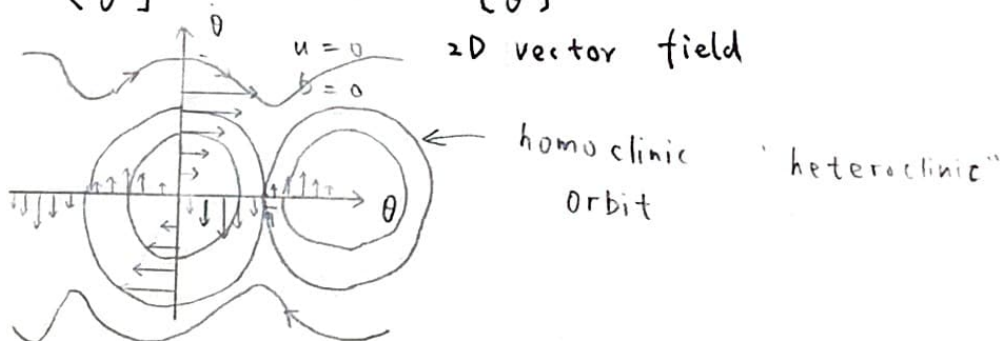 θ̇
u = 0 2D vector field
b = 0
homoclinic "heteroclinic"
orbit
θ